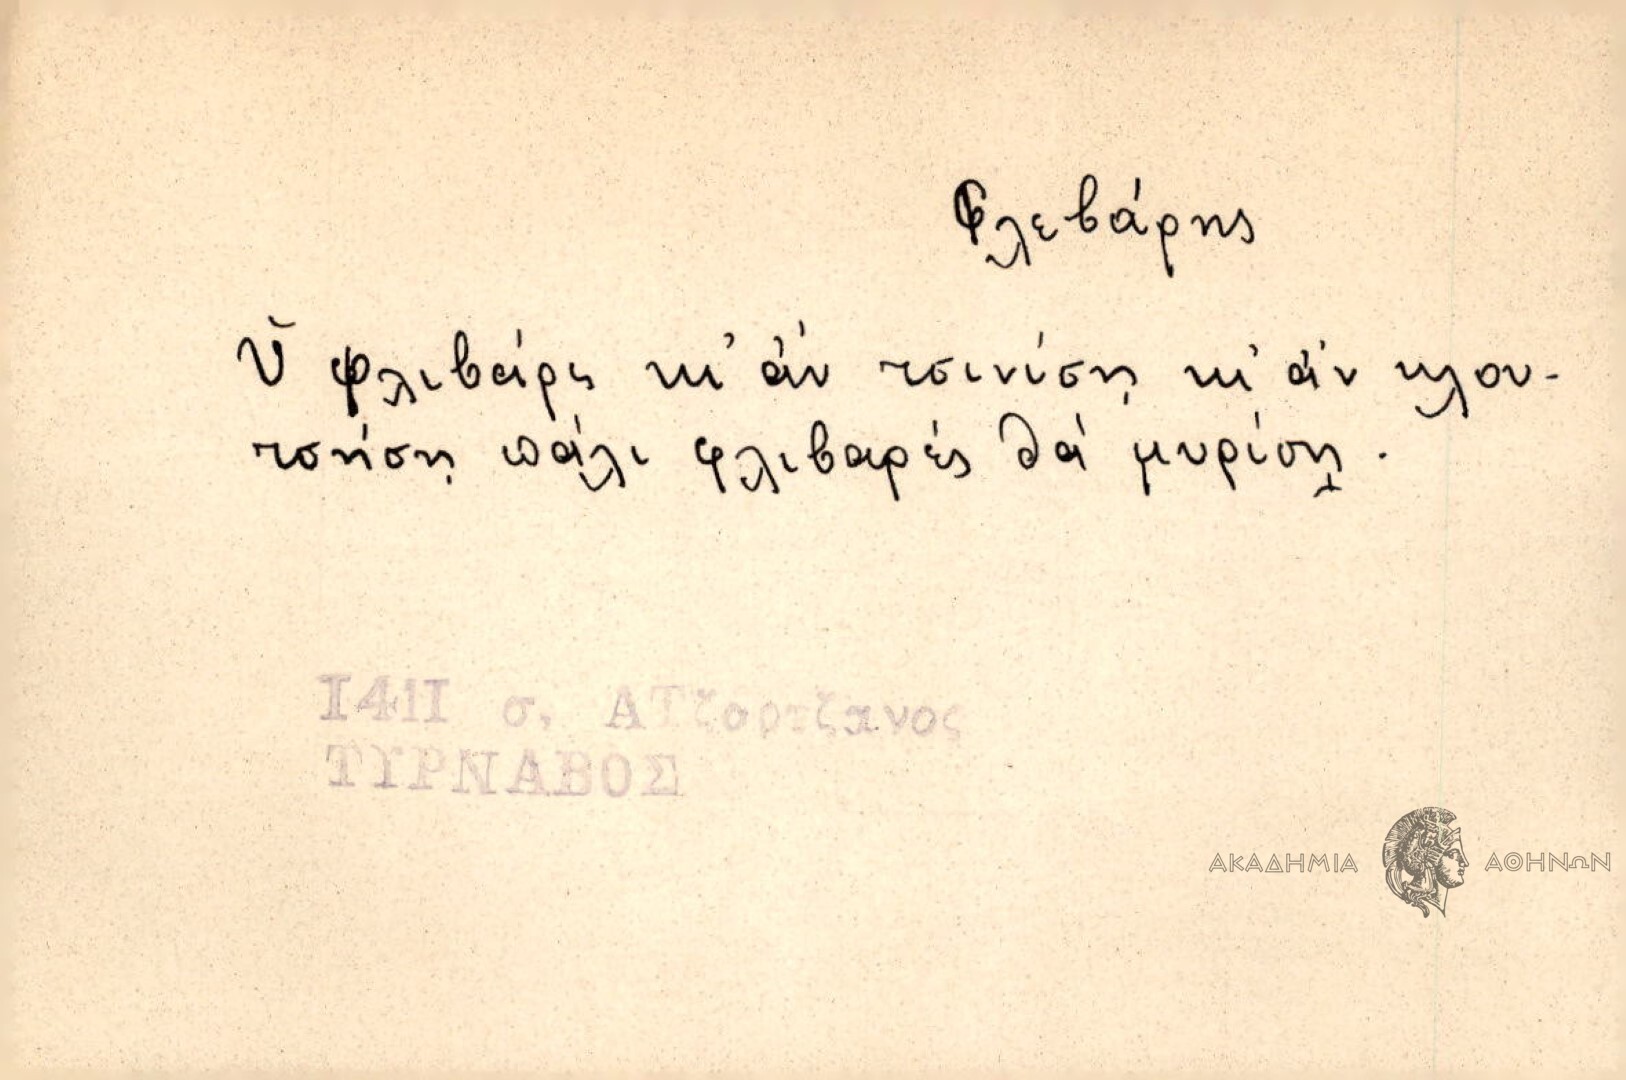 Φλεβάρης
Ὁ φλιβάρς κι' ἀν τσινίση κι' ἀν κλου-
τσήση πάλι φλιβαρές θά μυρίση.
1411 σ. ΑΤζαρτζανος
ΤΥΡΝΑΒΟΣ
ΑΚΑΔΗΜΙΑ ΑΘΗΝΩΝ